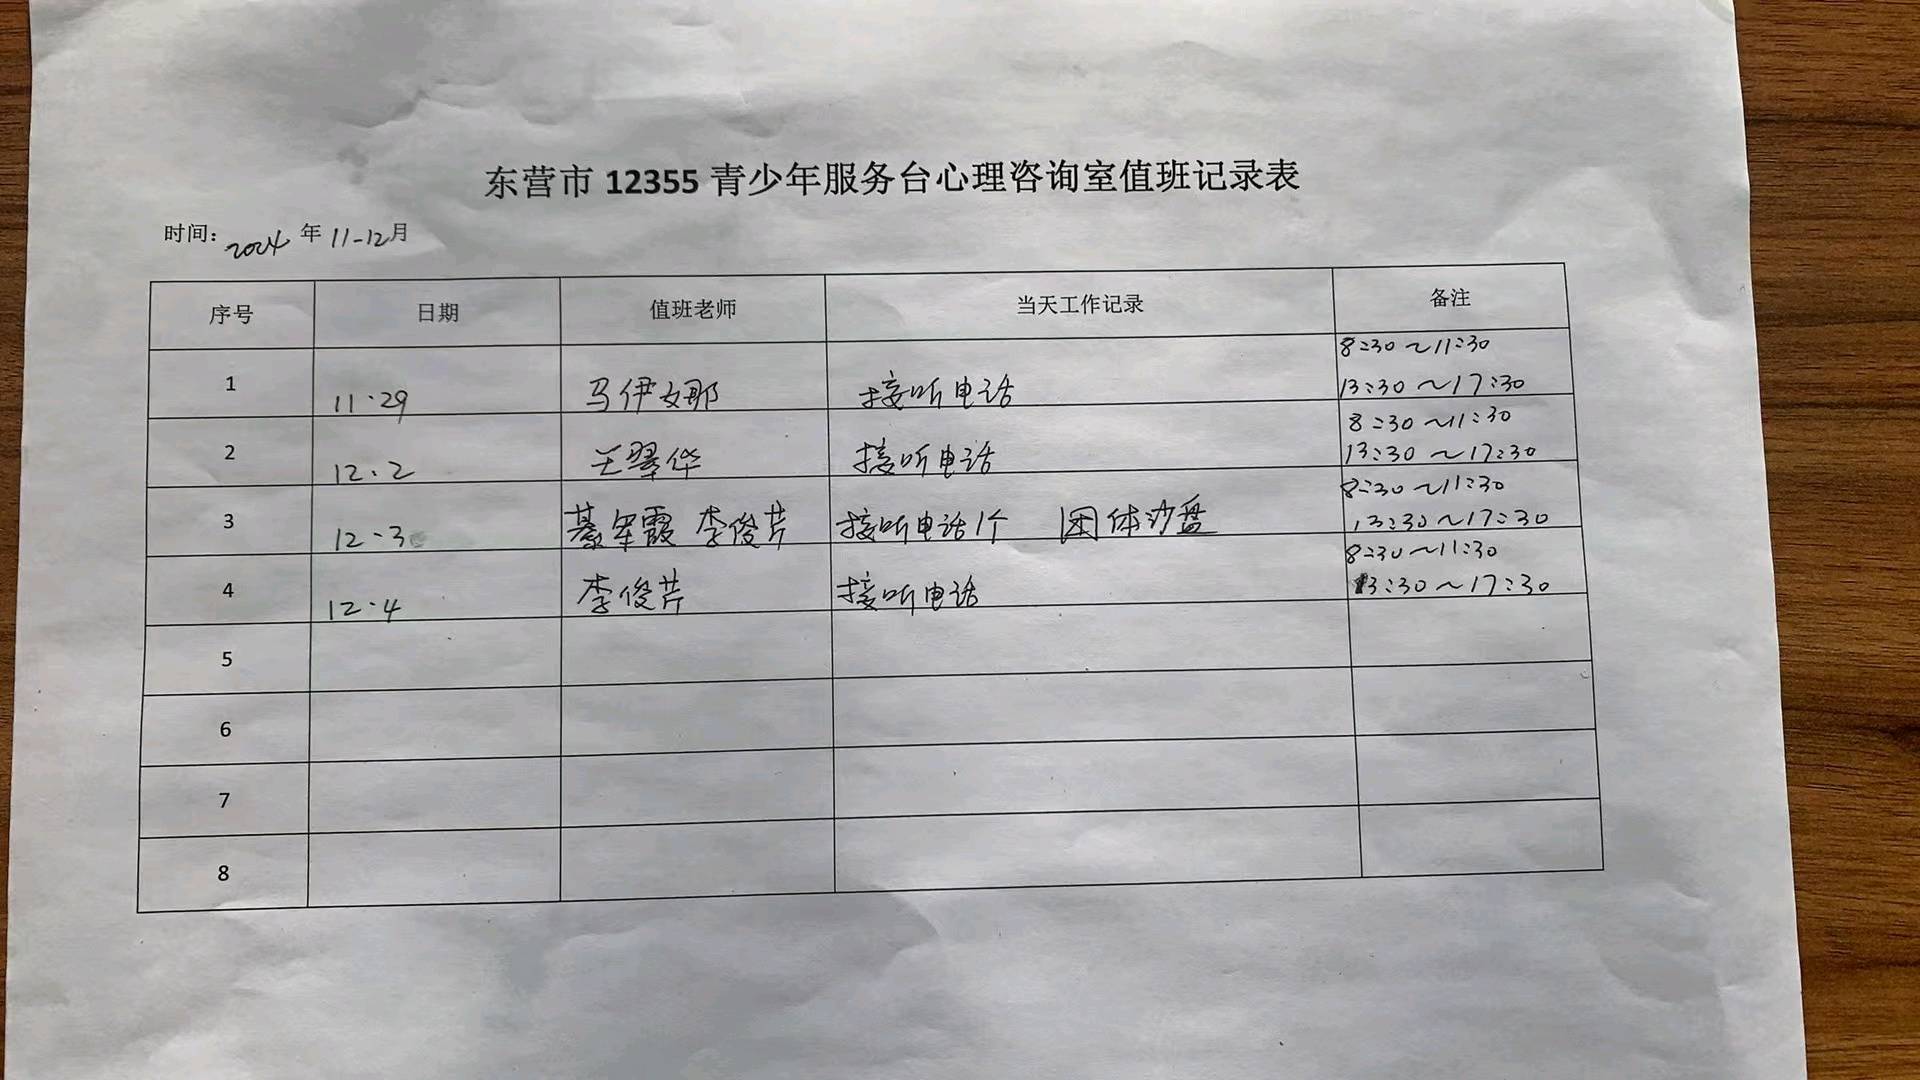 东营市 12355 青少年服务台心理咨询室值班记录表
时间: 2024 年 11-12月
序号 日期 值班老师 当天工作记录 备注
1 11.29 马伊女那 接听电话 8:30～11:30
13:30～17:30
2 12.2 王翠华 接听电话 8:30～11:30
13:30～17:30
3 12.3 綦军霞 李俊芹 接听电话1个 团体沙盘 8:30～11:30
13:30～17:30
4 12.4 李俊芹 接听电话 8:30～11:30
13:30～17:30
5
6
7
8